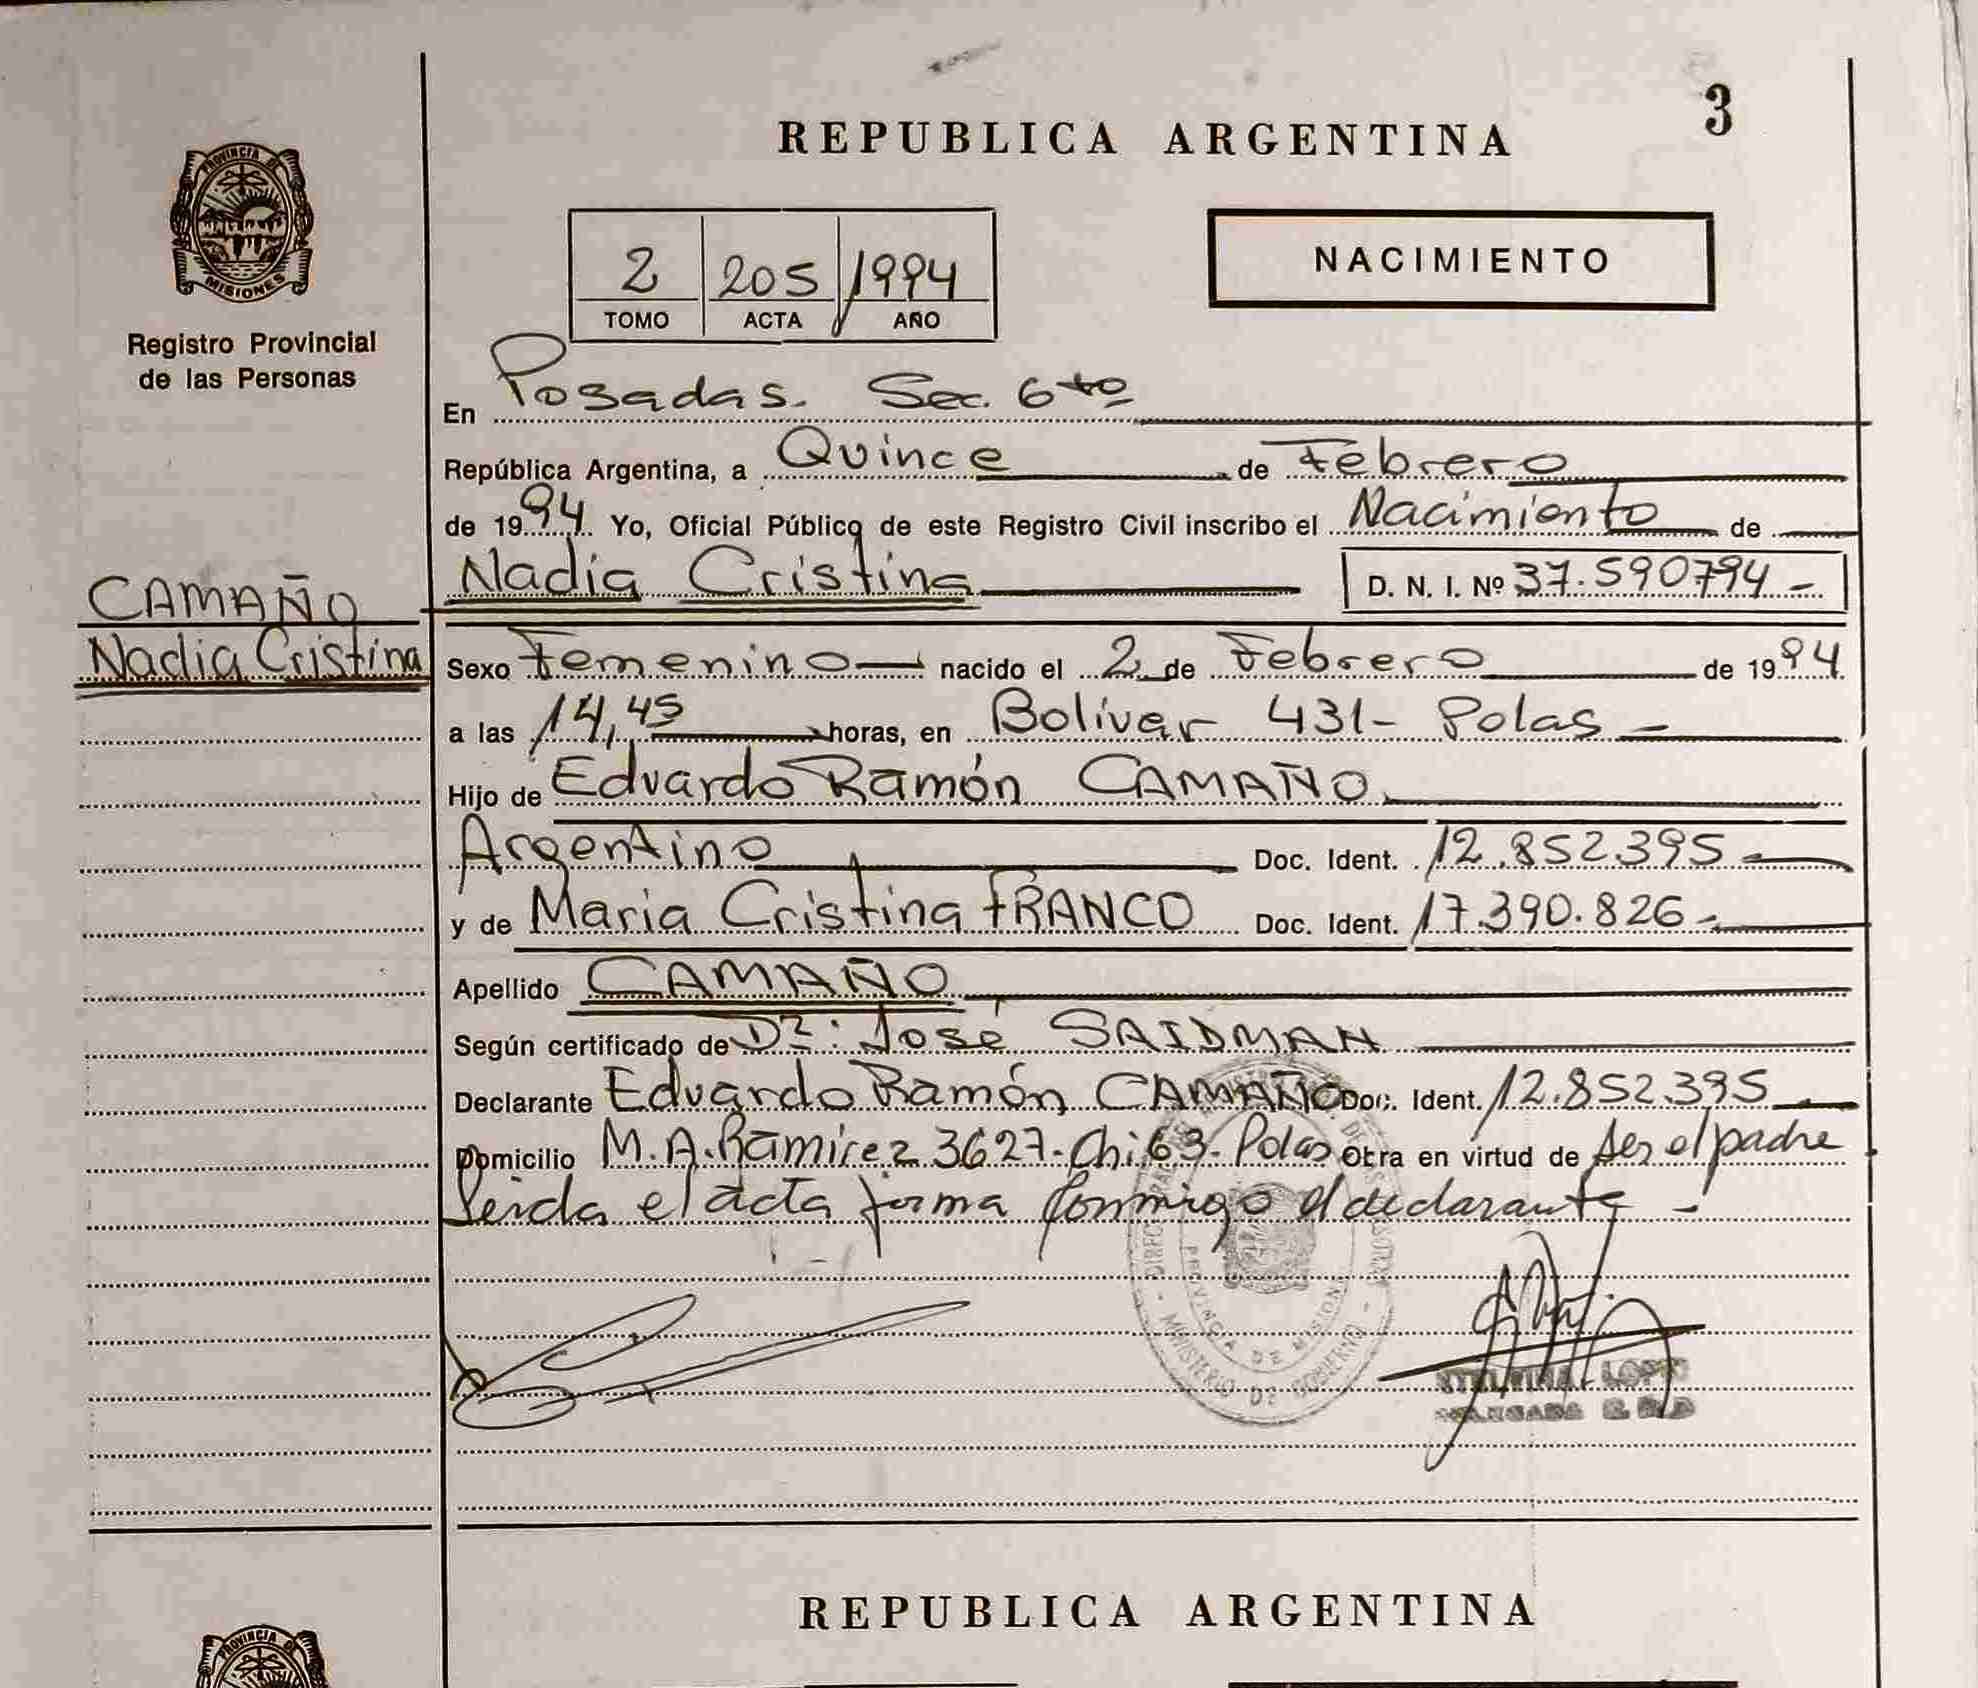 REPUBLICA ARGENTINA
3
PROVINCIA DE
MISIONES
Registro Provincial
de las Personas
2 205 1994
TOMO ACTA AÑO
NACIMIENTO
En Posadas. Sec. 6to
República Argentina, a Quince de Febrero
de 1994. Yo, Oficial Público de este Registro Civil inscribo el Nacimiento de
Nadia Cristina D. N. I. Nº 37.590794 -
CAMAÑO
Nadia Cristina
Sexo Femenino nacido el 2 de Febrero de 1994
a las 14,45 horas, en Bolívar 431- Pdas -
Hijo de Eduardo Ramón CAMAÑO
Argentino Doc. Ident. 12.852.395 -
y de Maria Cristina FRANCO Doc. Ident. 17.390.826 -
Apellido CAMAÑO
Según certificado de Dr: José SAIDMAN
Declarante Eduardo Ramón CAMAÑO Doc. Ident. 12.852.395
Domicilio M.A. Ramírez 3627- Ch: 63- Pdas Obra en virtud de ser el padre
Leida el acta firma conmigo el declarante -
PROVINCIA DE MISIONES
MINISTERIO DE GOBIERNO
REPUBLICA ARGENTINA
PROVINCIA DE